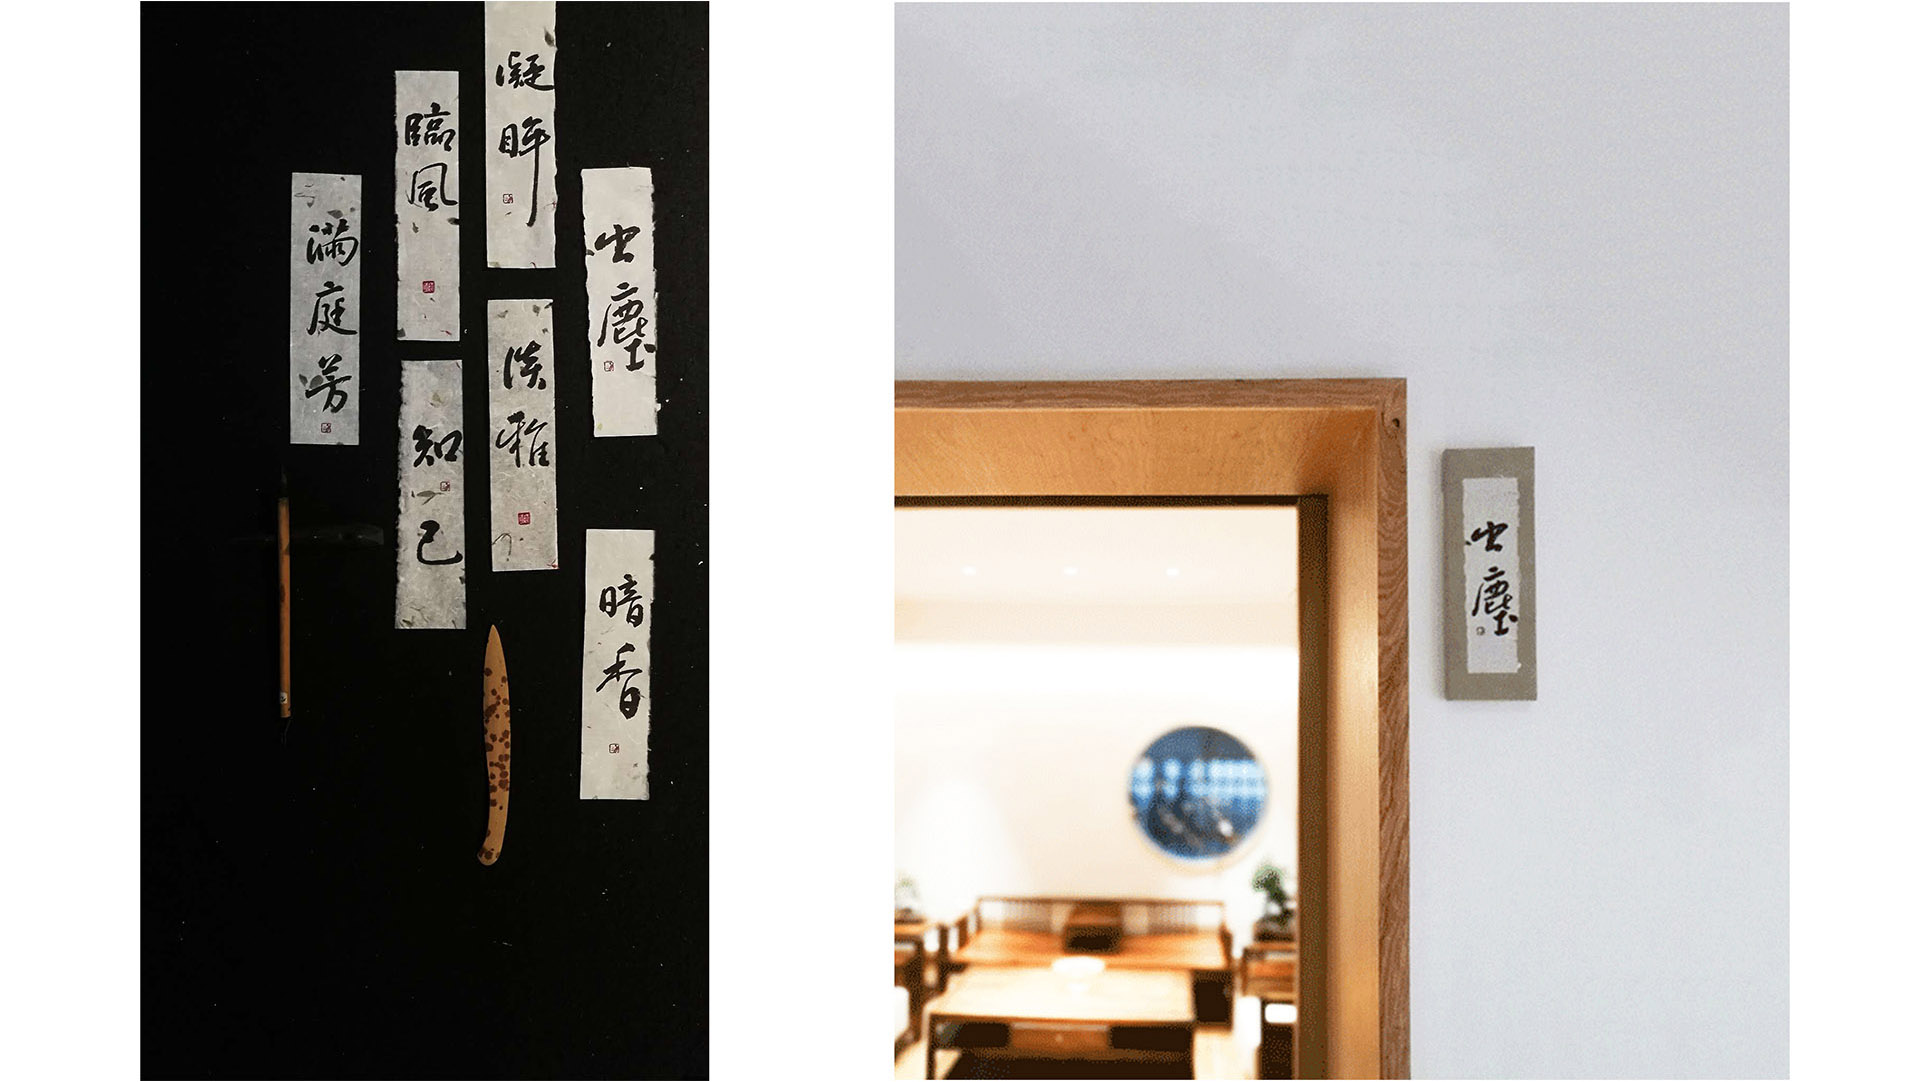 满庭芳
臨風
知己
凝眸
淡雅
出塵
暗香
出塵